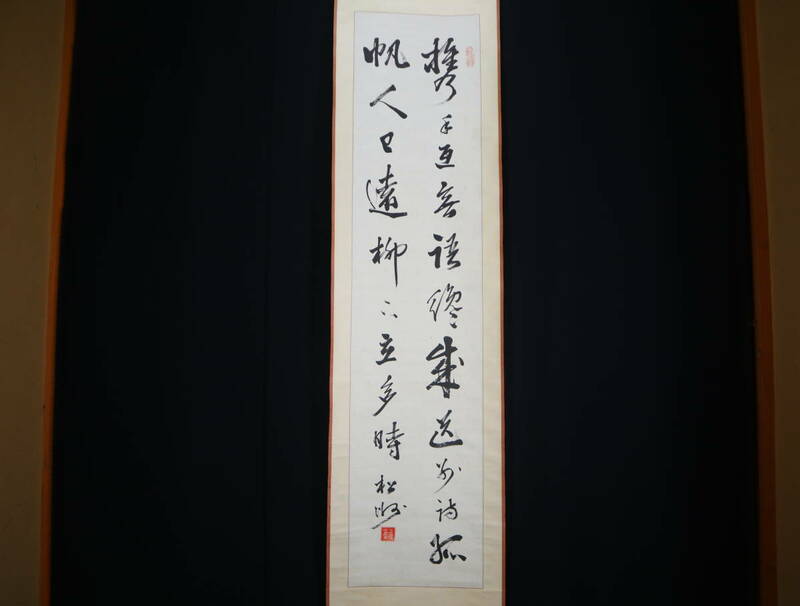 携手互無語纔成送別詩孤
帆人已遠柳下立多時
松洲